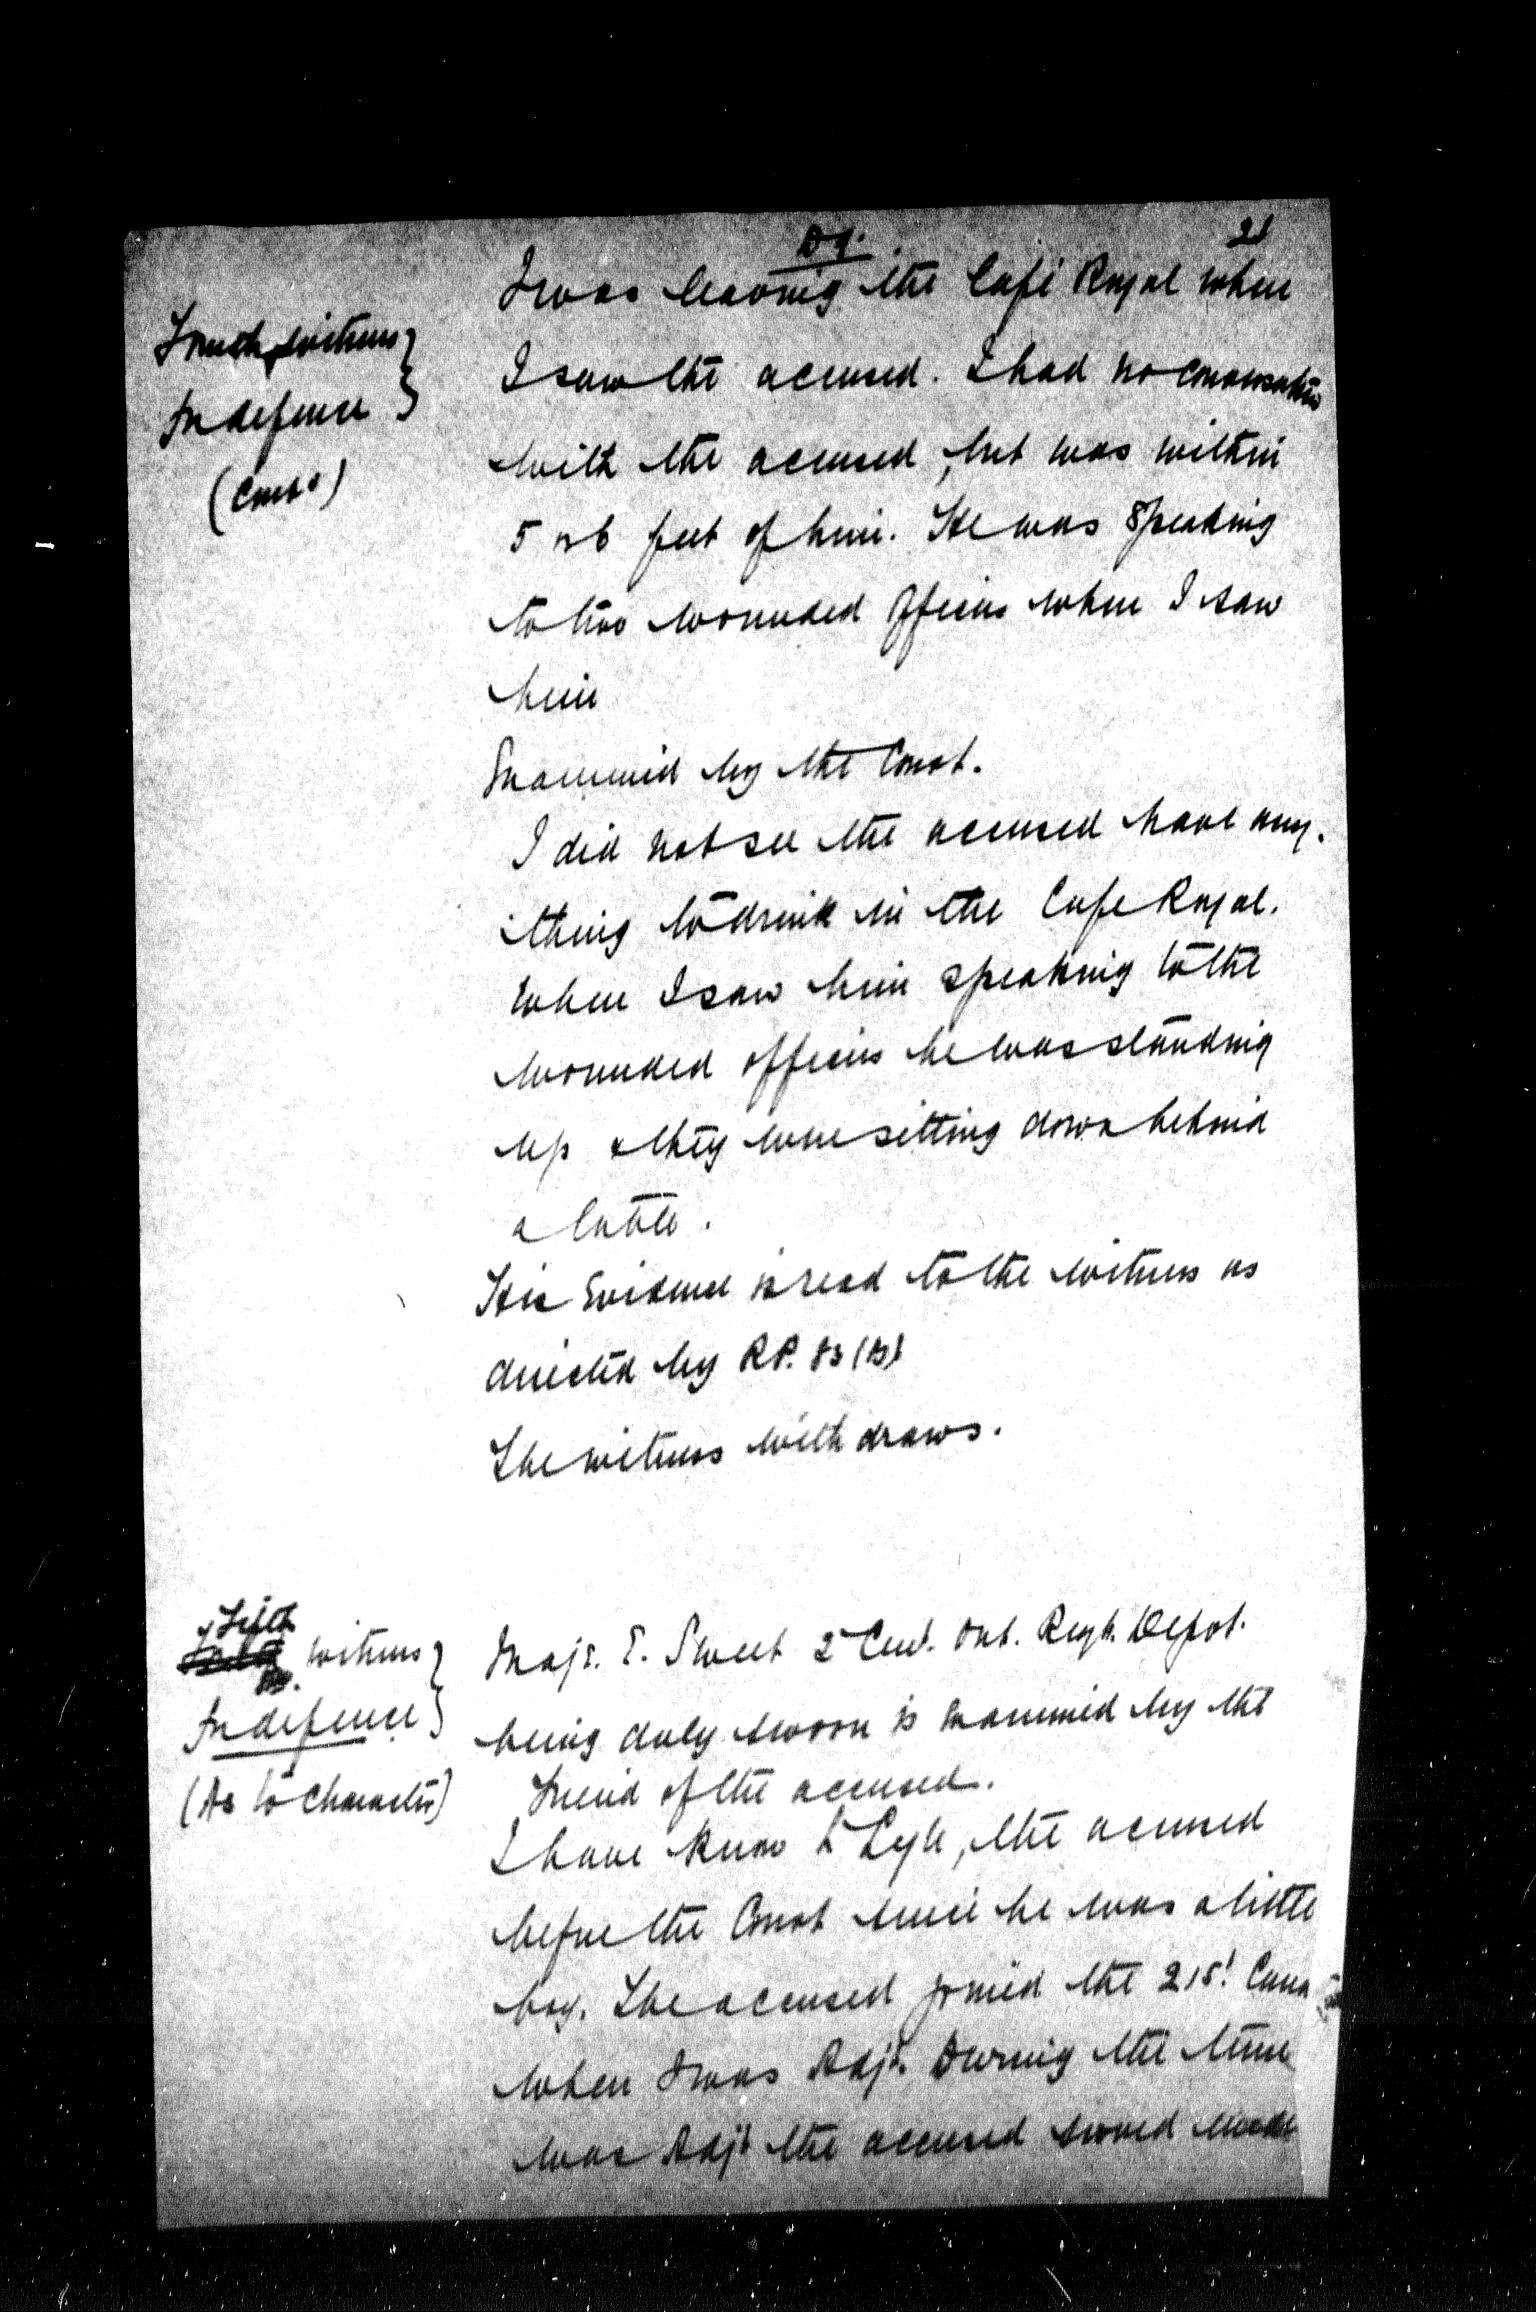 21
I was leaving the Café Royal when
Fourth witness
I saw the accused. I had no conversation
In defence
with the accused, but was within
(Contd)
5 or 6 feet of him. He was speaking
to two wounded officers when I saw
him
Examined by the Court.
I did not see the accused have any-
thing to drink in the Cafe Royal.
When I saw him speaking to the
wounded officers he was standing
up & they were sitting down behind
a table.
His Evidence is read to the witness as
directed by R.P. 83 (B)
The witness withdraws.
Fifth
witness
Majr. E. Sweet 2 Cent. Ont. Regt. Depot.
In defence
being duly sworn is examined by the
(As to Character)
friend of the accused.
I have know Lt Lyle, the accused
before the Court since he was a little
boy. The accused joined the 215t Cana
when I was Adjt. During the time
was Adjt the accused served under